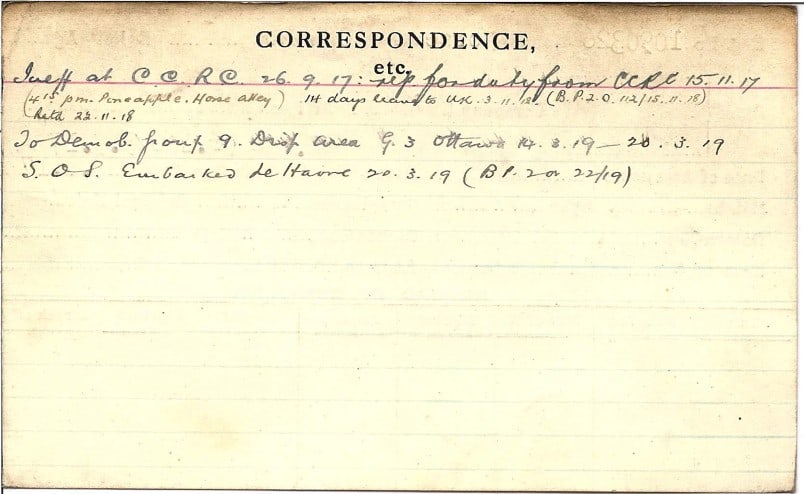 CORRESPONDENCE,
etc.
Ineff at C C. R C. 26. 9. 17: rep for duty from CCRC 15. 11. 17
(4 15 pm. Pineapple. Horse alley) 14 days leave to UK. 3. 11. 18. (B.P.2.O. 112/15. 11. 18)
Retd 23. 11. 18
To Demob. group 9. Disp area G. 3 Ottawa 14. 3. 19 — 20. 3. 19
S. O. S. Embarked le Havre 20. 3. 19 (B P. 2 or 22/19)